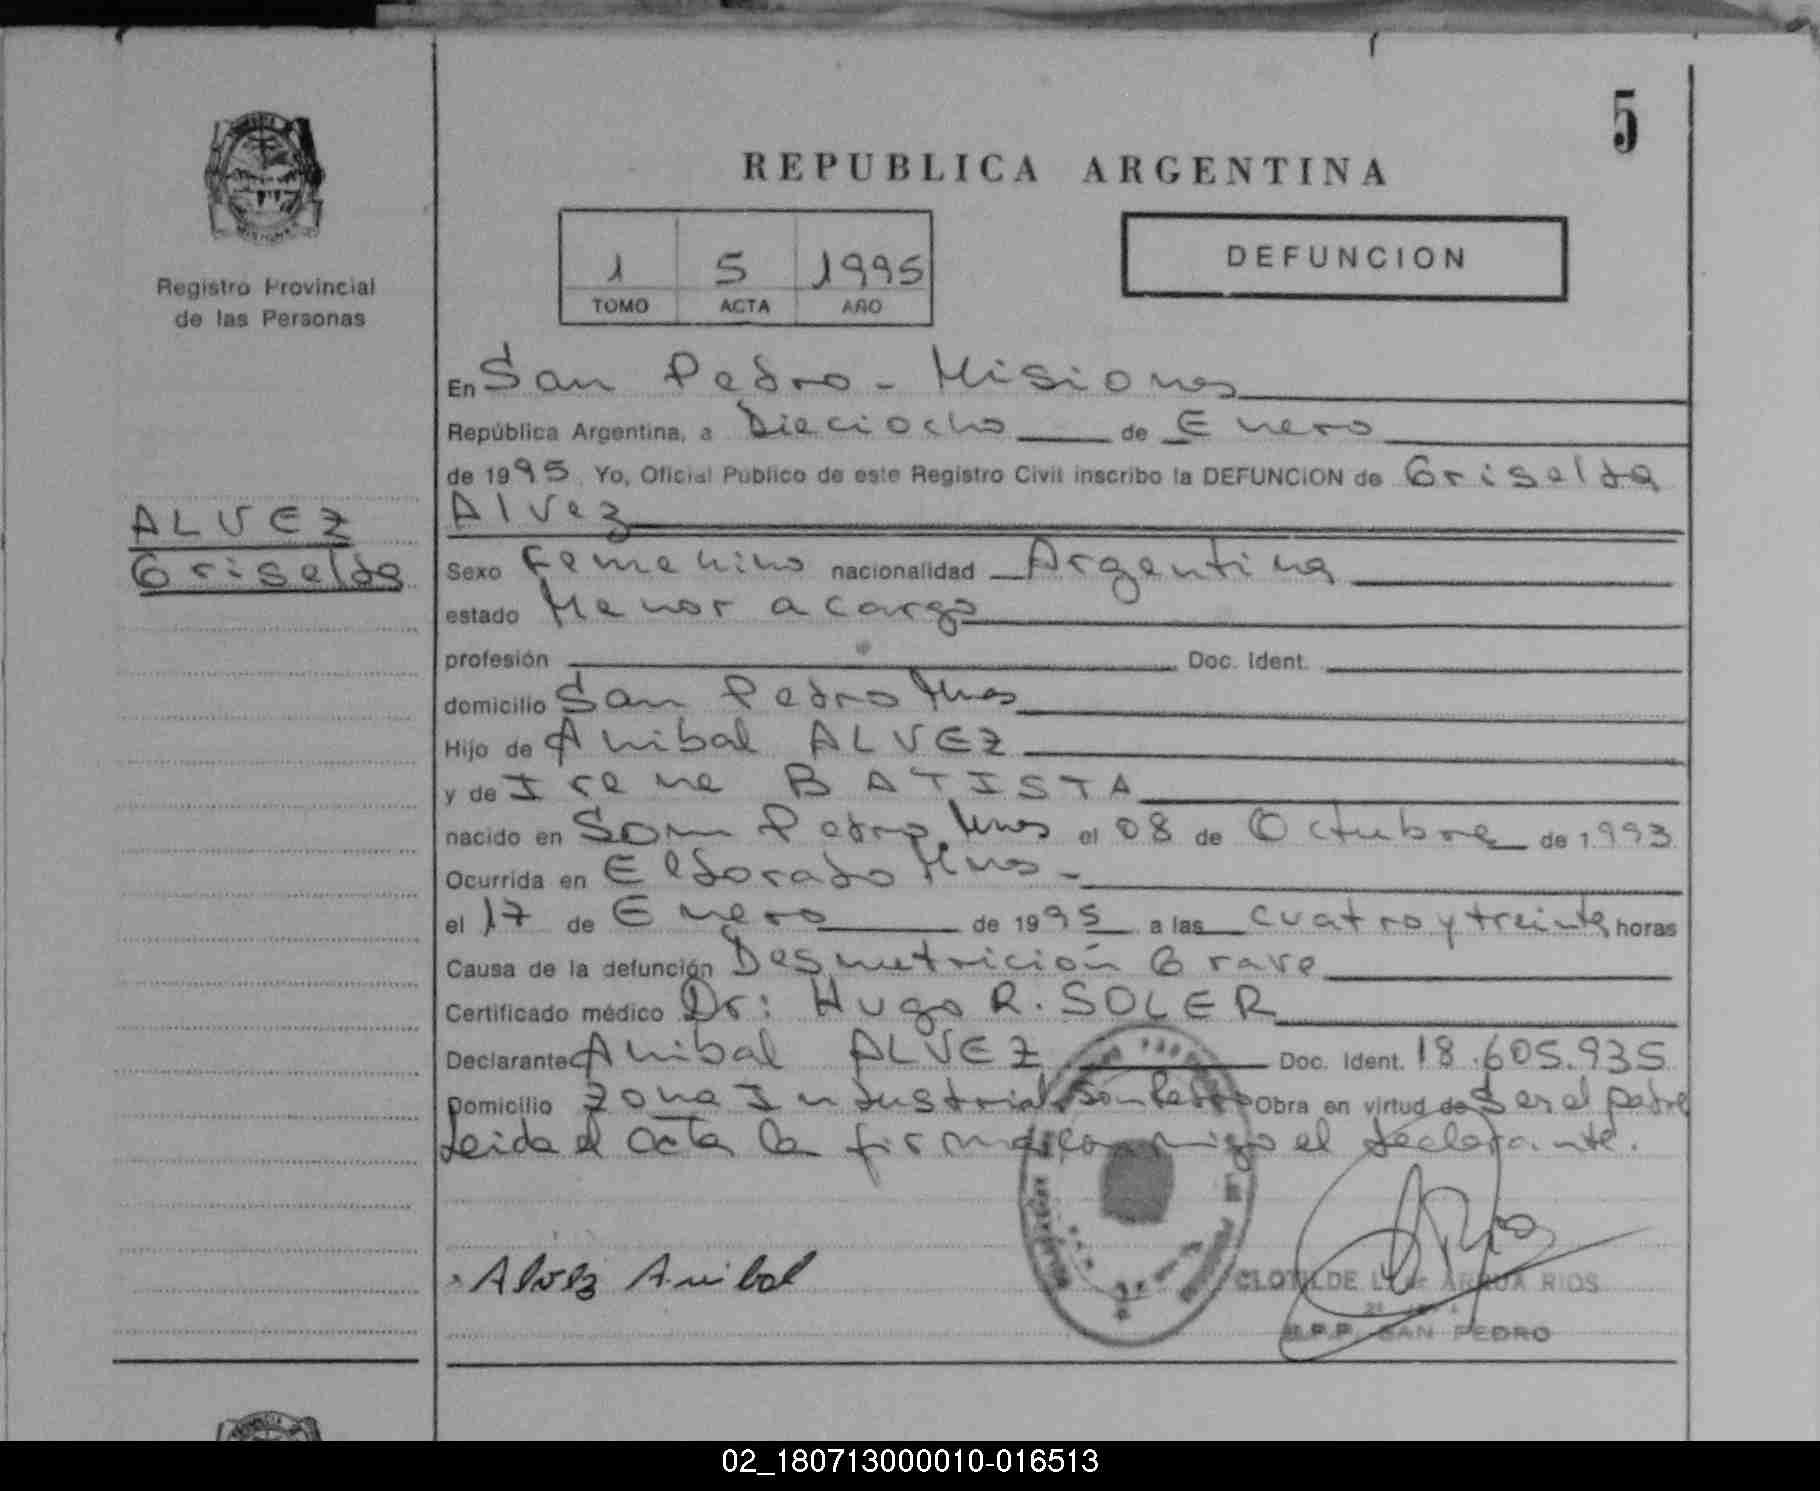 5
REPUBLICA ARGENTINA
Registro Provincial
de las Personas
1 5 1995
TOMO ACTA AÑO
DEFUNCION
En San Pedro - Misiones
República Argentina, a Dieciocho de Enero
de 1995 Yo, Oficial Público de este Registro Civil inscribo la DEFUNCION de Griselda
Alvez
ALVEZ
Griselda
Sexo Femenino nacionalidad Argentina
estado Menor a cargo
profesión Doc. Ident.
domicilio San Pedro Mnes
Hijo de Anibal ALVEZ
y de Irene BATISTA
nacido en San Pedro Mnes el 08 de Octubre de 1.993
Ocurrida en Eldorado Mnes -
el 17 de Enero de 1995 a las cuatro y treinta horas
Causa de la defunción Desnutrición Grave
Certificado médico Dr: Hugo R. SOLER
Declarante Anibal ALVEZ Doc. Ident. 18.605.935
Domicilio Zona Industrial San Pedro Obra en virtud de Ser el padre
Leida el acta la firma conmigo el declarante.
Alvez Anibal
CLOTILDE L. de ARRUA RIOS
R.P.P. SAN PEDRO
02_180713000010-016513